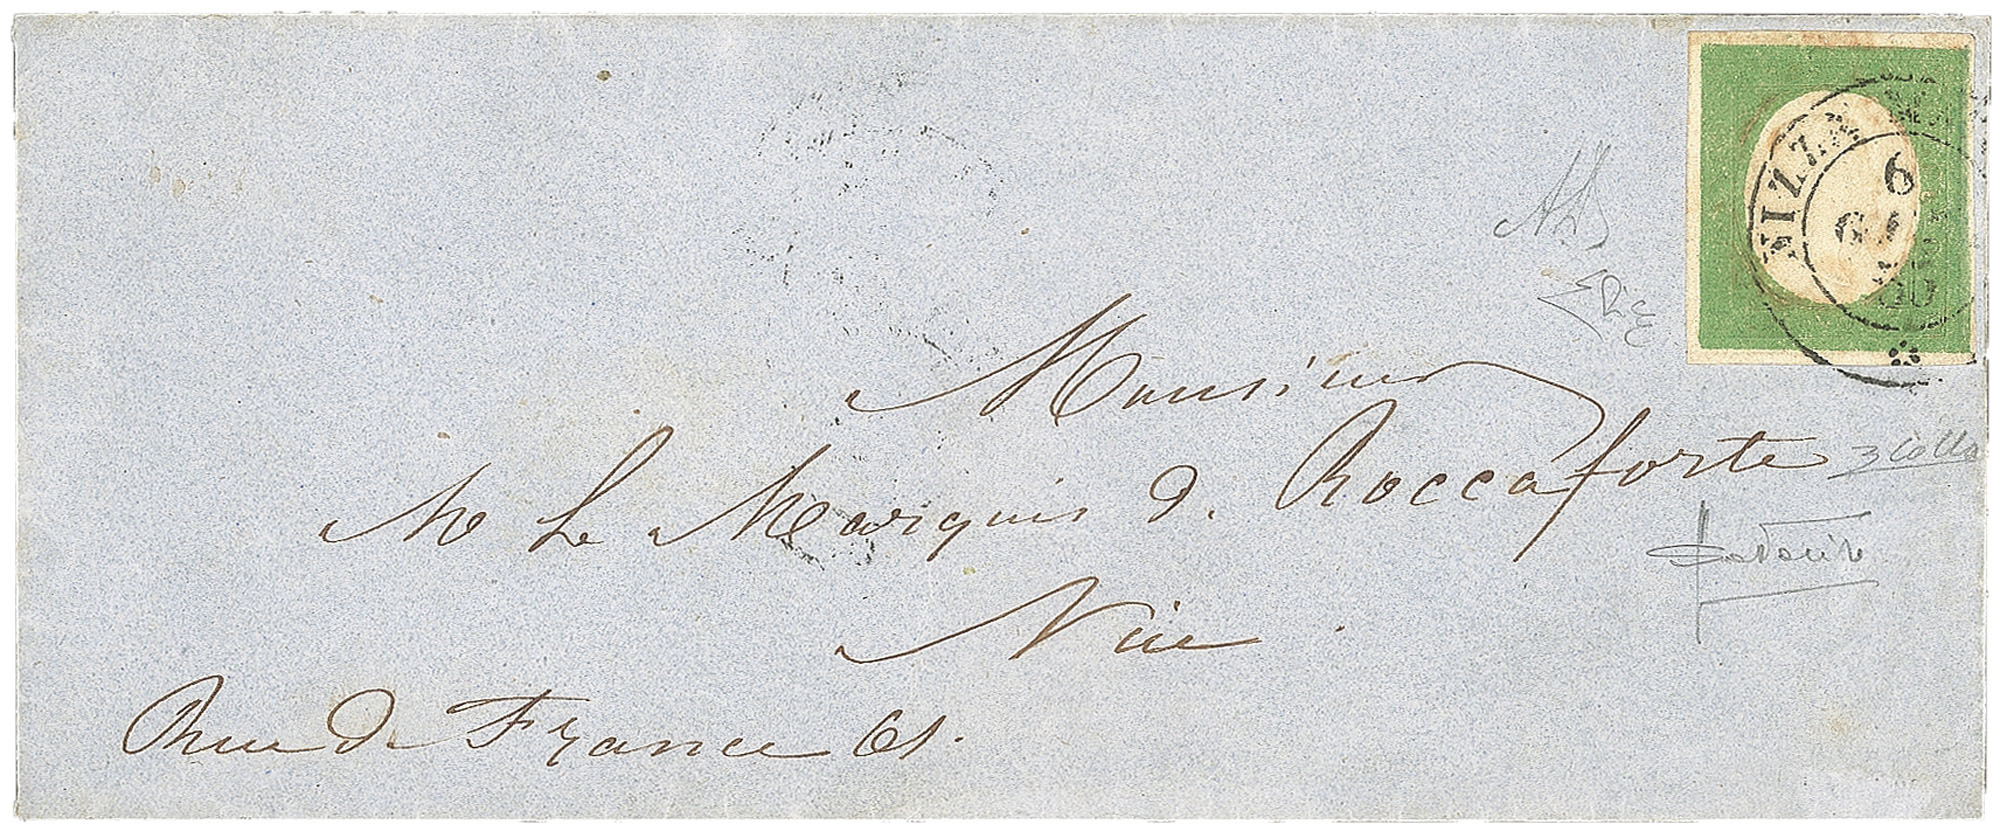 NIZZA MA
6
GEN
Monsieur
Mr Le Marquis d. Roccaforte
Nice
Rue d. France 61.